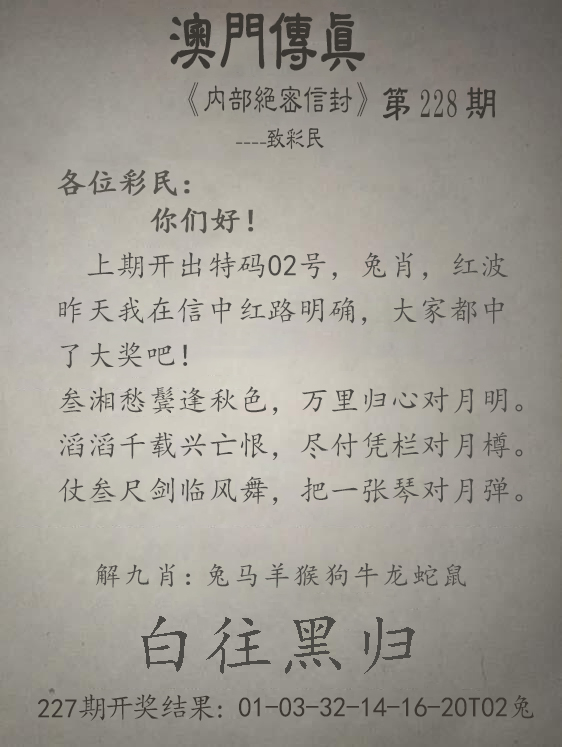 澳門傳真
《内部絕密信封》第228期
----致彩民
各位彩民：
你们好！
上期开出特码02号，兔肖，红波
昨天我在信中红路明确，大家都中
了大奖吧！
叁湘愁鬓逢秋色，万里归心对月明。
滔滔千载兴亡恨，尽付凭栏对月樽。
仗叁尺剑临风舞，把一张琴对月弹。
解九肖：兔马羊猴狗牛龙蛇鼠
白往黑归
227期开奖结果：01-03-32-14-16-20T02兔